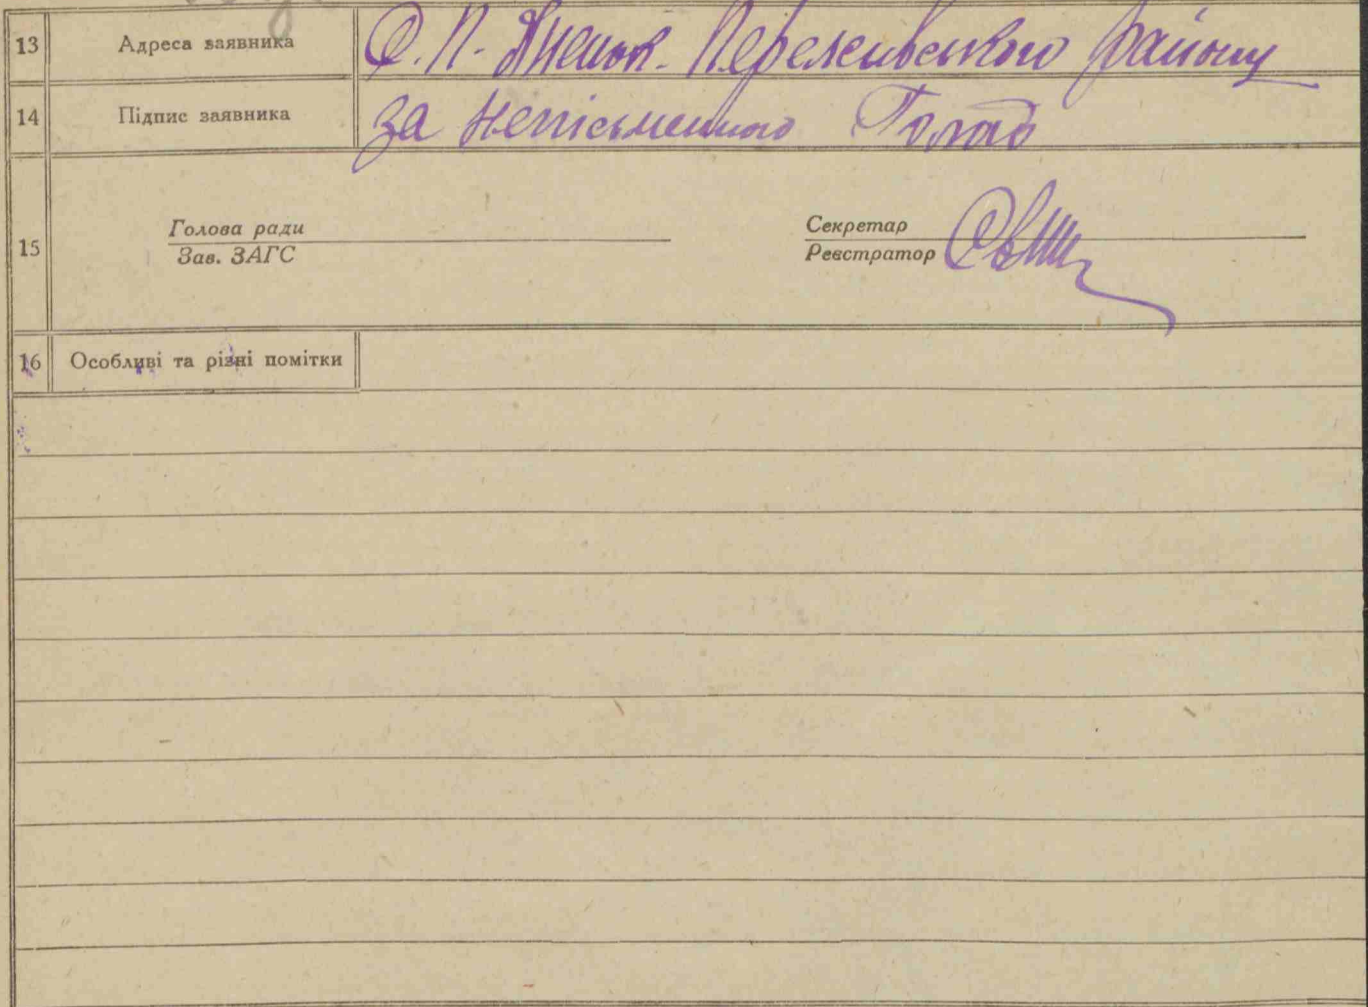 13 Адреса заявника С. П. Перелсивського району
14 Підпис заявника за непісьменного
15 Голова ради
Зав. ЗАГС
Секретар
Реєстратор
16 Особливі та різні помітки